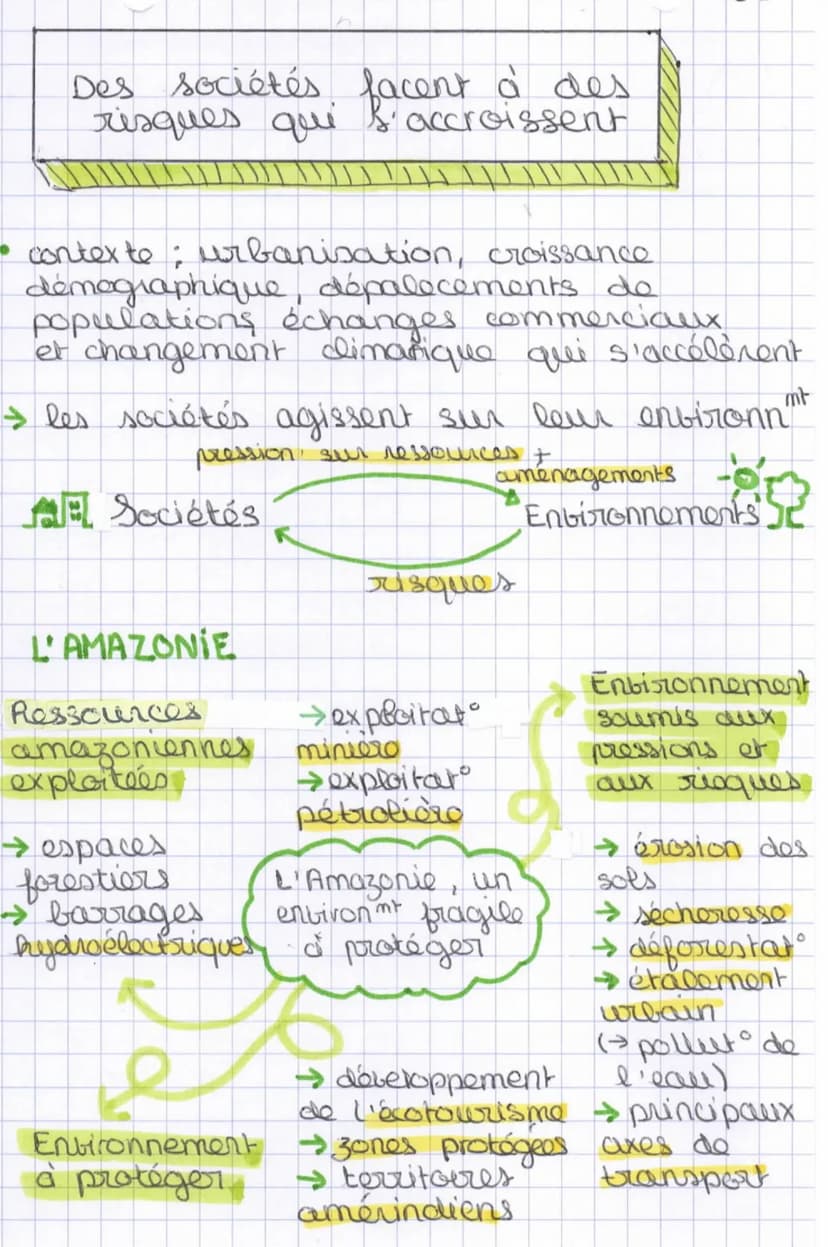 Des sociétés facent à des
risques qui s'accroissent
• contexte : urbanisation, croissance
démographique, dépalacements de
populations, échanges commerciaux
et changement climatique qui s'accélèrent
→ les sociétés agissent sur leur environnmt
pression sur ressources +
aménagements
Sociétés
Environnements
risques
L'AMAZONIE
Ressources
amazoniennes
exploitées
→ espaces
forestiers
→ barrages
hydroélectriques
→ exploitat°
minière
→ exploitat°
pétrolière
Environnement
soumis aux
pressions et
aux risques
→ érosion des
sols
→ sécheresse
→ déforestat°
→ étalement
urbain
(→ pollut° de
l'eau)
→ principaux
axes de
transport
L'Amazonie, un
environmt fragile
à protéger
Environnement
à protéger
→ développement
de l'écotourisme
→ zones protégées
→ territoires
amérindiens